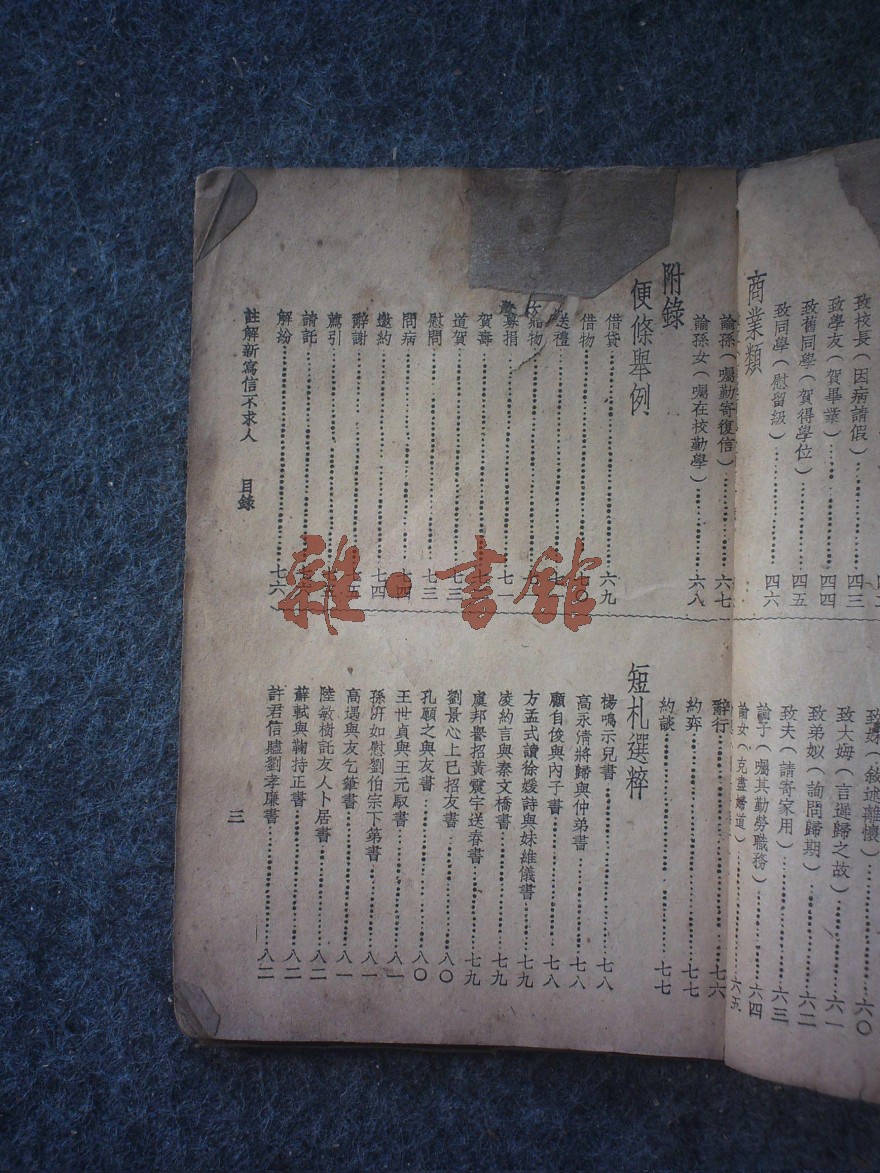 致校長(因病請假)……四三
致學友(賀畢業)……四四
致舊同學(賀得學位)……四五
致同學(慰留級)……四六
商業類
致妹(敘述離懷)……六〇
致大姆(言遲歸之故)……六一
致弟姒(詢問歸期)……六二
致夫(請寄家用)……六三
諭子(囑其勤勞職務)……六四
諭女(克盡婦道)……六五
諭孫(囑勤寄復信)……六七
諭孫女(囑在校勤學)……六八
附錄
便條舉例
借貸……六九
借物……七〇
送禮……七
餽物……七
募捐……七一
賀壽……七
道賀……七三
慰問……七三
問病……七四
邀約……七四
辭謝……七五
薦引……七五
請託……七
解紛……七六
辭行……七六
約弈……七七
約談……七七
短札選粹
楊鳴示兒書……七八
高永清將歸與仲弟書……七八
顧自俊與內子書……七八
方孟式讀徐媛詩與妹維儀書……七九
凌約言與秦文橋書……七九
虞邦譽招黃震宇送春書……七九
劉景心上巳招友書……八〇
孔願之與友書……八〇
王世貞與王元馭書……八一
孫汧如慰劉伯宗下第書……八一
高遇與友乞筆書……八一
陸敏樹託友人卜居書……八二
蘇軾與鞠持正書……八二
許君信贐劉孝廉書……八二
註解新寫信不求人 目錄
三
雜·書館